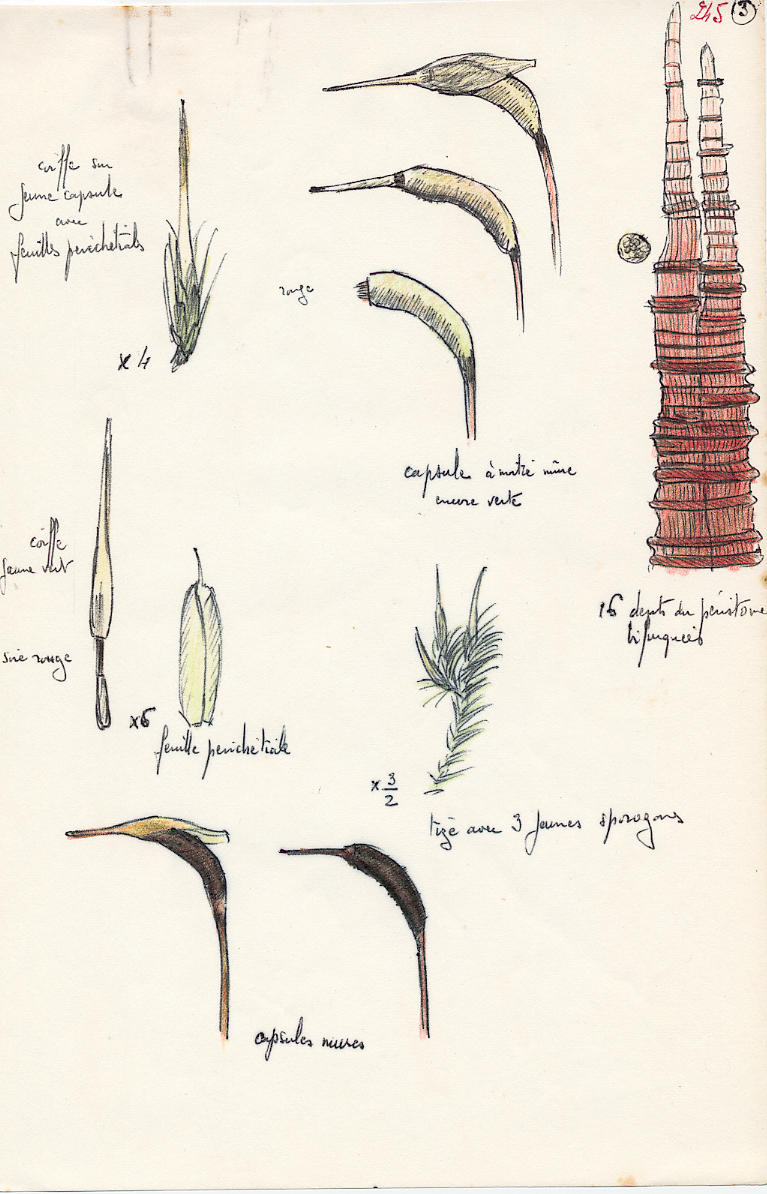 245 3
coiffe sur
jeune capsule
avec
feuilles périchétiales
x 4
rouge
capsule à moitié mûre
encore verte
16 dents du péristome
bifurquées
coiffe
jaune vert
soie rouge
x6
feuille perichétiale
x 3/2
tige avec 3 jeunes sporogones
capsules mures